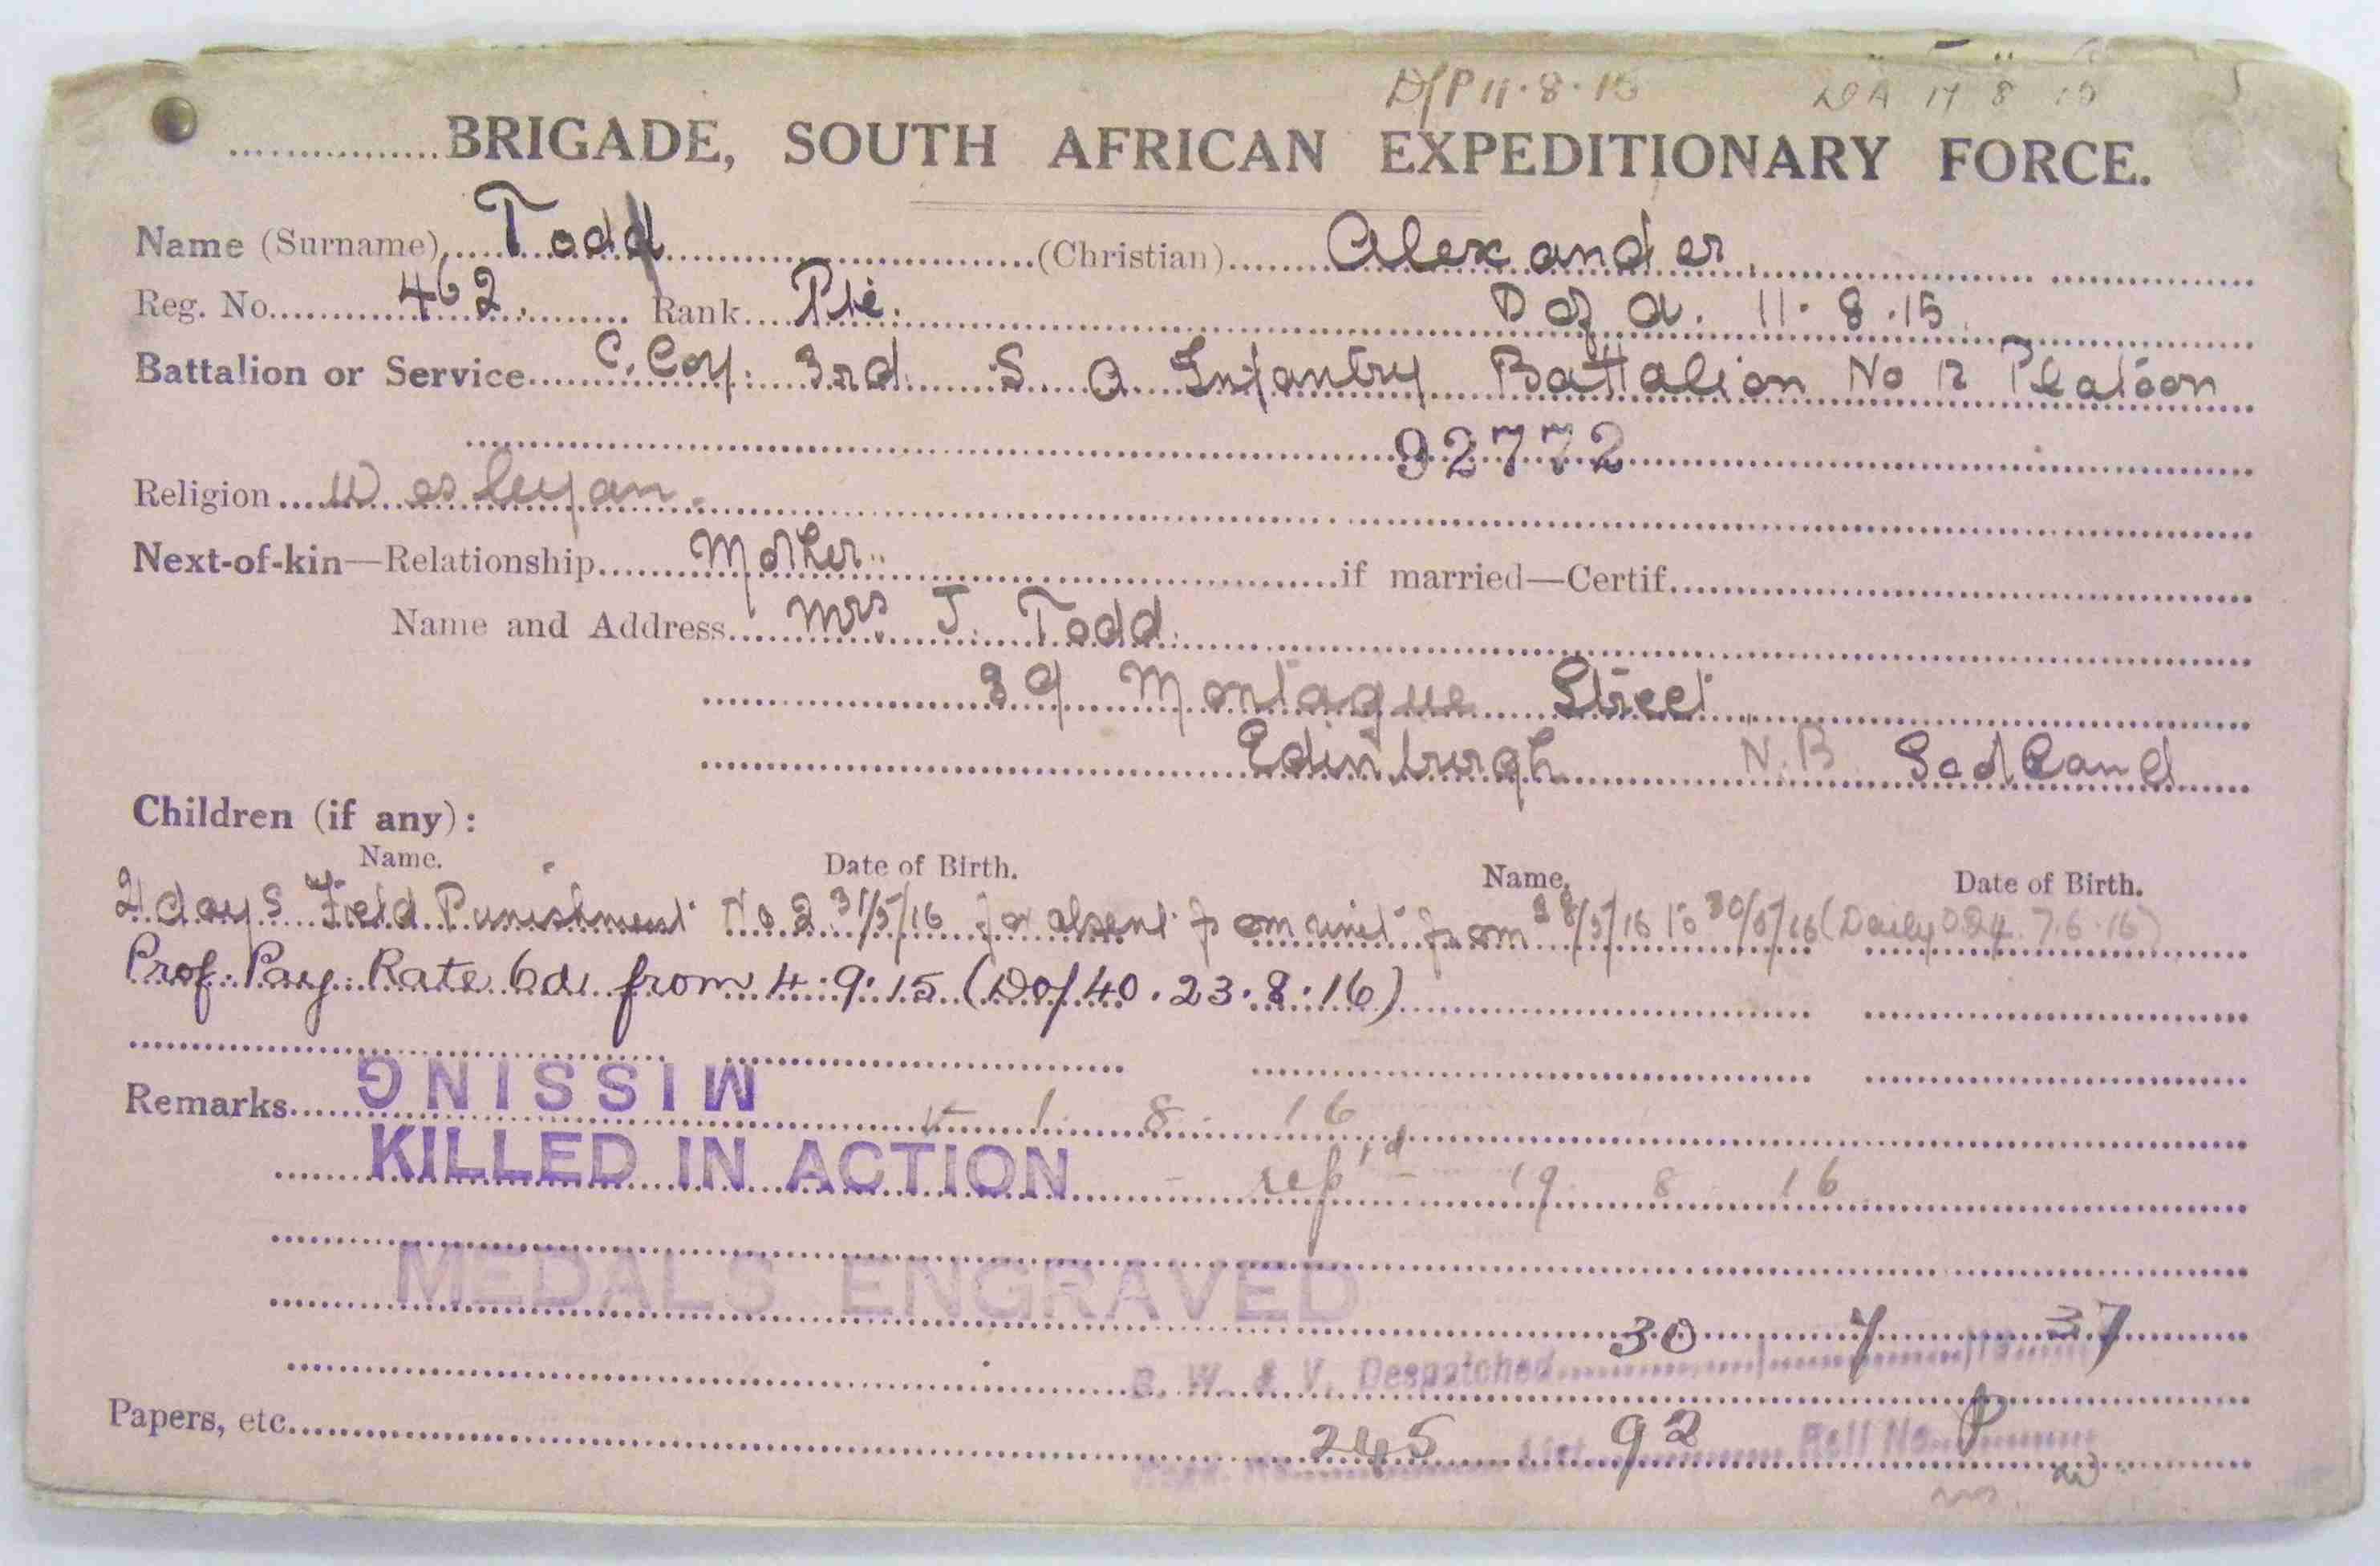 D/P 11.8.15
BRIGADE, SOUTH AFRICAN EXPEDITIONARY FORCE.
Name (Surname) Todd (Christian) Alexander
Reg. No. 462. Rank Pte. D of A. 11.8.15
Battalion or Service C. Coy. 3rd S A Infantry Battalion No 12 Platoon
92772
Religion Wesleyan.
Next-of-kin—Relationship Mother if married—Certif.
Name and Address Mrs J. Todd.
39 Montague Street
Edinburgh N.B Scotland
Children (if any):
Name. Date of Birth. Name. Date of Birth.
days Field Punishment No 2 31/5/16 for absent from unit from 28/5/16 to 30/5/16 (Daily 7.6.16)
Prof. Pay. Rate 6d. from 4:9:15 (Do/40.23.8.16)
Remarks MISSING 8 16
KILLED IN ACTION - rep'd - 19 8 16
MEDALS ENGRAVED
B. W. & V. Despatched 30 7 37
Papers, etc. 245 List 92 Roll No. P